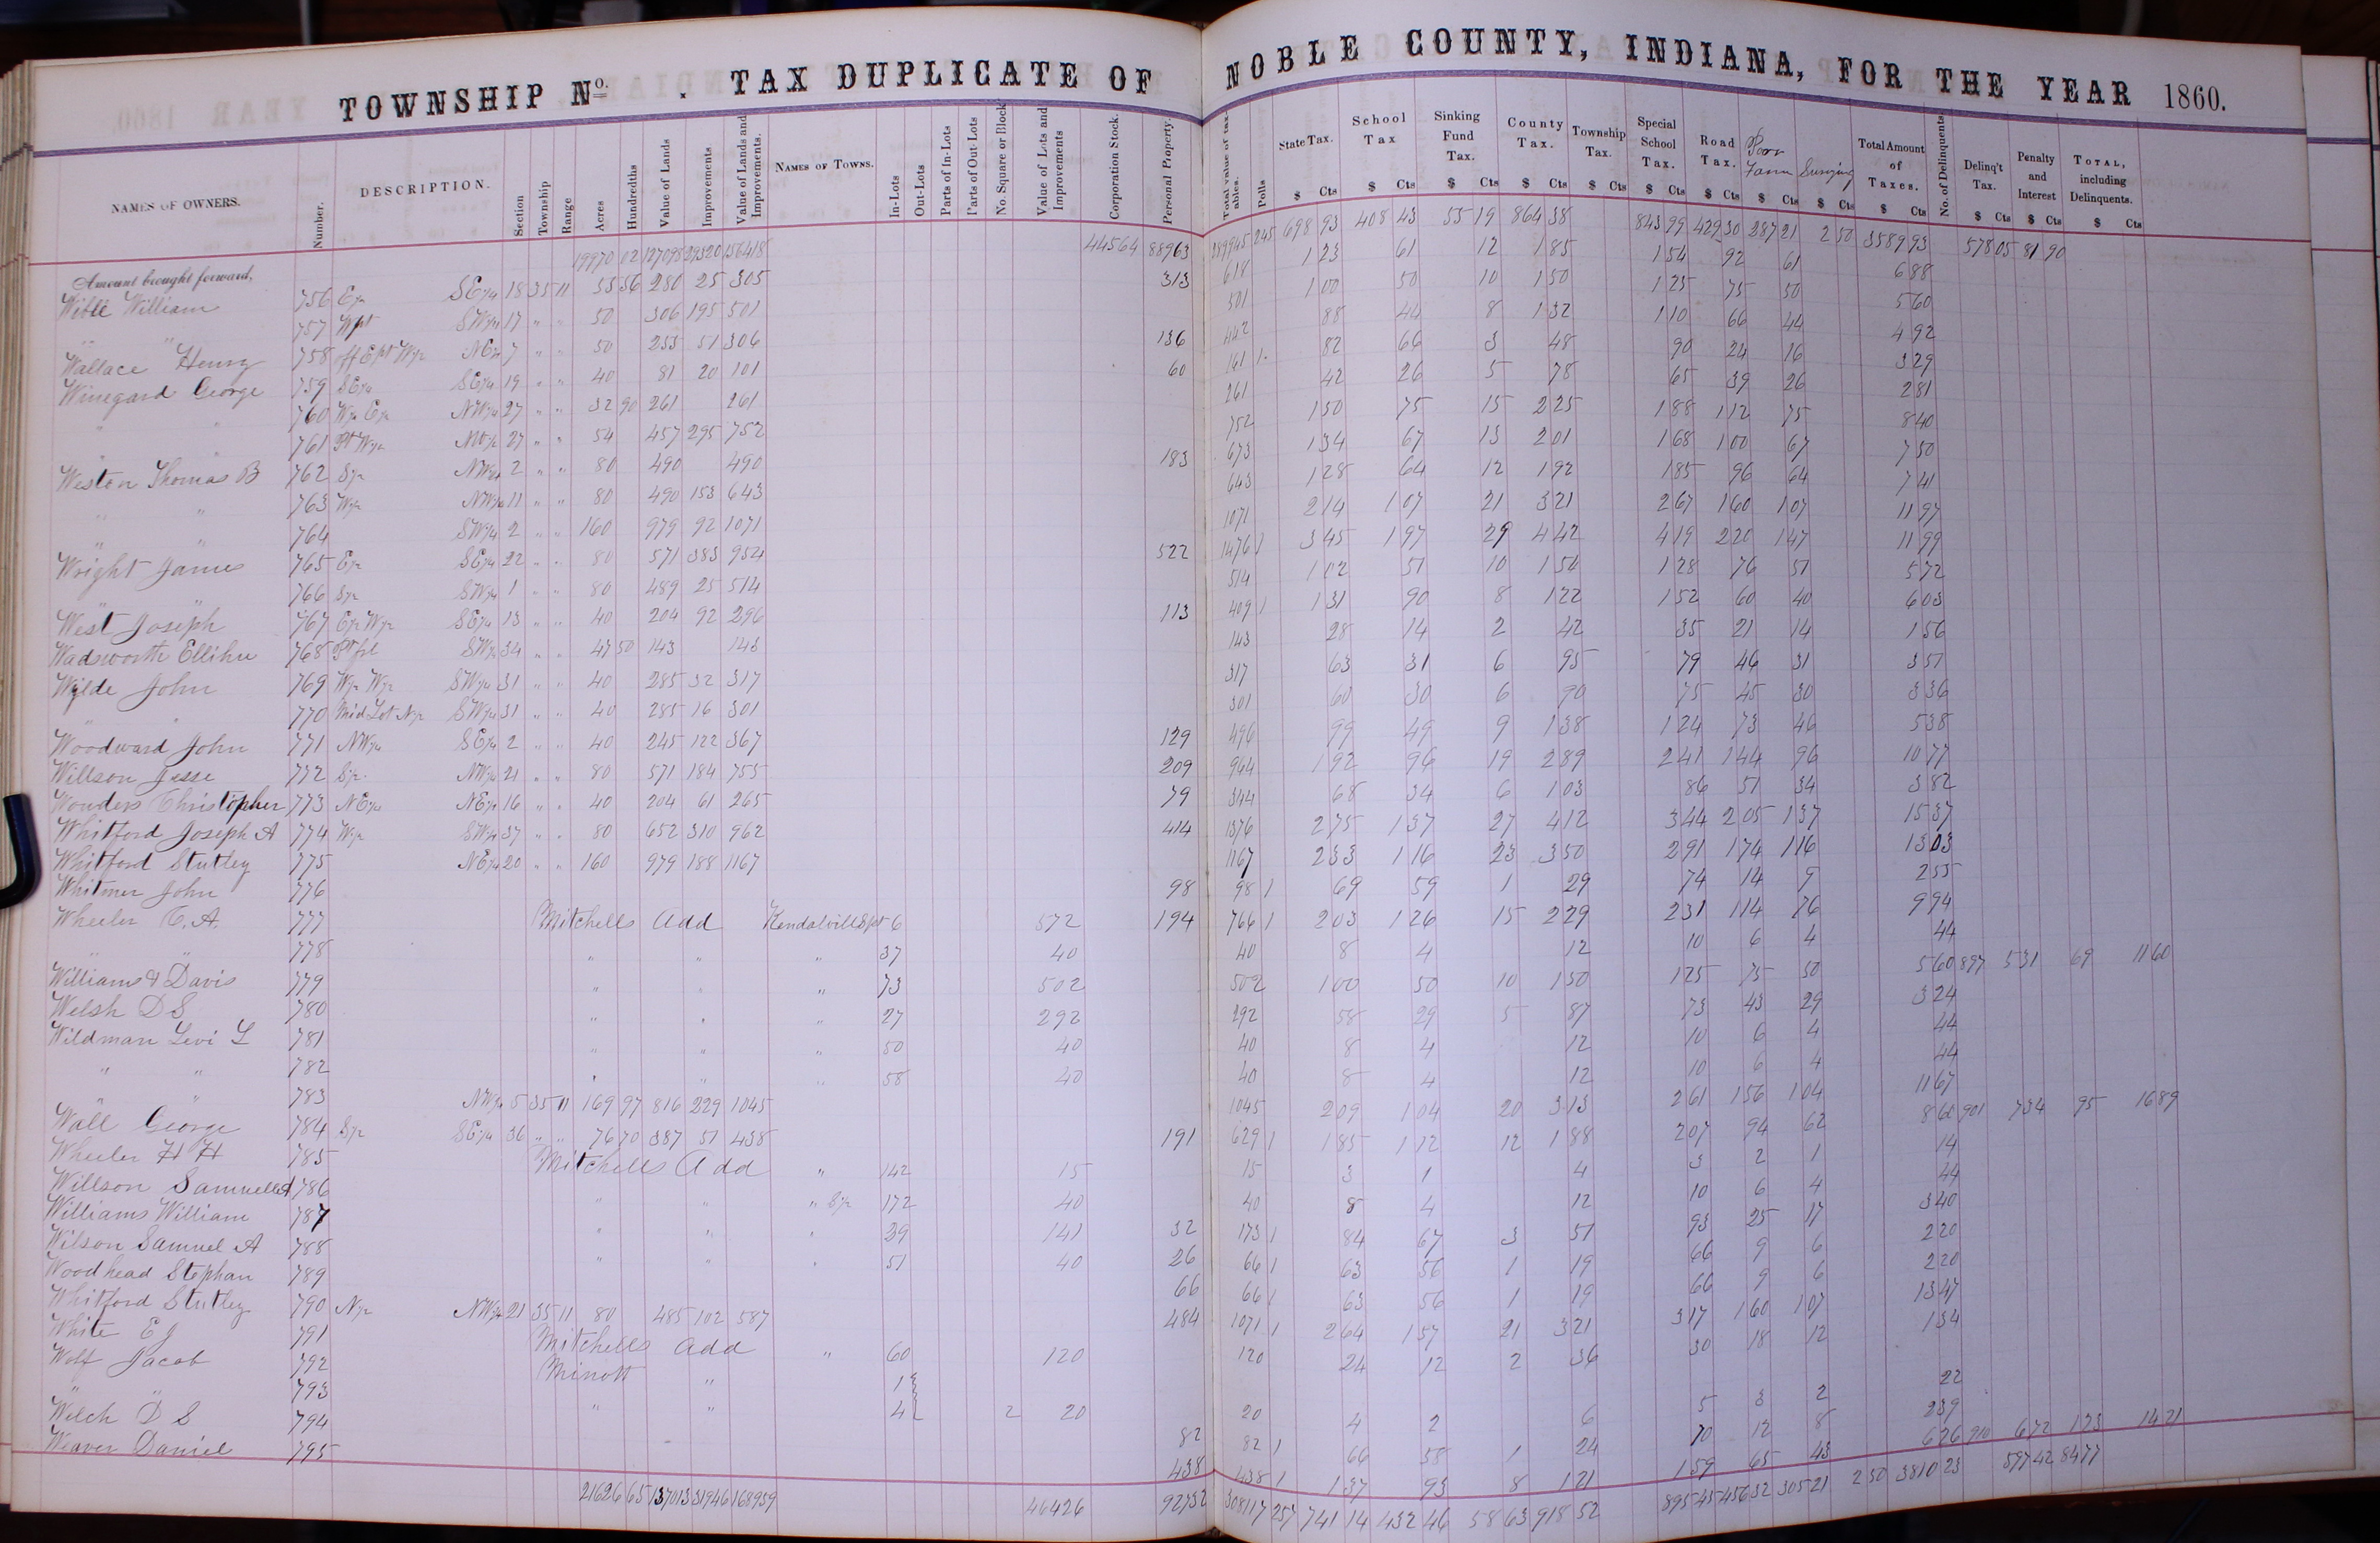 TOWNSHIP No. . TAX DUPLICATE OF NOBLE COUNTY, INDIANA, FOR THE YEAR 1860.
NAMES OF OWNERS. Number. DESCRIPTION. Section Township Range Acres Hundredths Value of Lands Improvements Value of Lands and Improvements. NAMES OF TOWNS. In-Lots Out-Lots Parts of In-Lots Parts of Out-Lots No. Square or Block Value of Lots and Improvements Corporation Stock. Personal Property. Total value of taxables. Polls State Tax. School Tax Sinking Fund Tax. County Tax. Township Tax. Special School Tax. Road Tax. Poor Farm Total Amount of Taxes. No. of Delinquents Delinq't Tax. Penalty and Interest TOTAL, including Delinquents.
Amount brought forward, 19970 02 127098 29320 156418 44564 88963 289945 245 698 93 408 43 55 19 864 38 843 99 429 30 287 21 2 50 3589 93 578 05 81 90
Wible William 756 E½ SE¼ 18 35 11 53 56 280 25 305 313 618 1 23 61 12 1 85 1 54 92 61 6 88
" " 757 Wpt SW¼ 17 " " 50 306 195 501 501 1 00 50 10 1 50 1 25 75 50 5 60
Wallace Henry 758 off Ept W½ NE¼ 7 " " 50 255 51 306 136 442 88 44 8 1 32 1 10 66 44 4 92
Winegard George 759 SE¼ SE¼ 19 " " 40 81 20 101 60 161 1 82 66 3 48 90 24 16 3 29
" " 760 W½ E½ NW¼ 27 " " 32 90 261 261 261 42 26 5 78 65 39 26 2 81
" " 761 Pt W½ NW¼ 27 " " 54 457 295 752 752 1 50 75 15 2 25 1 88 1 12 75 8 40
Weston Thomas B 762 S½ NW¼ 2 " " 80 490 490 183 673 1 34 67 13 2 01 1 68 1 00 67 7 50
" " 763 W½ NW¼ 11 " " 80 490 153 643 643 1 28 64 12 1 92 1 85 96 64 7 41
" " 764 SW¼ 2 " " 160 979 92 1071 1071 2 14 1 07 21 3 21 2 67 1 60 1 07 11 97
Wright James 765 E½ SE¼ 22 " " 80 571 383 954 522 1476 1 3 45 1 97 29 4 42 4 19 2 20 1 47 11 99
" 766 S½ SW¼ 1 " " 80 489 25 514 514 1 02 51 10 1 54 1 28 76 51 5 72
West Joseph 767 E½ W½ SE¼ 13 " " 40 204 92 296 113 409 1 1 31 90 8 1 22 1 52 60 40 6 03
Wadsworth Ellihu 768 Pt frl SW¼ 34 " " 47 50 143 143 143 28 14 2 42 35 21 14 1 56
Wylde John 769 W½ W½ SW¼ 31 " " 40 285 32 317 317 63 31 6 95 79 46 31 3 51
" " 770 Mid Lot N½ SW¼ 31 " " 40 285 16 301 301 60 30 6 90 75 45 30 3 36
Woodward John 771 NW¼ SE¼ 2 " " 40 245 122 367 129 496 99 49 9 1 38 1 24 73 46 5 38
Willson Jesse 772 S½ NW¼ 21 " " 80 571 184 755 209 964 1 92 96 19 2 89 2 41 1 44 96 10 77
Wonders Christopher 773 NE¼ NE¼ 16 " " 40 204 61 265 79 344 68 34 6 1 03 86 51 34 3 82
Whitford Joseph A 774 W½ SW¼ 37 " " 80 652 310 962 414 1376 2 75 1 37 27 4 12 3 44 2 05 1 37 15 37
Whitford Stutley 775 NE¼ 20 " " 160 979 188 1167 1167 2 33 1 16 23 3 50 2 91 1 74 1 16 13 03
Whitmer John 776 98 98 1 69 59 1 29 74 14 9 2 55
Wheeler C. A. 777 Mitchells Add Kendalville Spt 6 572 194 766 1 2 03 1 26 15 2 29 2 31 1 14 76 9 94
" " 778 " " " 37 40 40 8 4 12 10 6 4 44
Williams & Davis 779 " " " 73 502 502 1 00 50 10 1 50 1 25 75 50 5 60 897 5 31 69 11 60
Welsh D S 780 " " " 27 292 292 58 29 5 87 73 43 29 3 24
Wildman Levi L 781 " " " 50 40 40 8 4 12 10 6 4 44
" " 782 " " " 58 40 40 8 4 12 10 6 4 44
" " 783 NW¼ 5 35 11 169 97 816 229 1045 1045 2 09 1 04 20 3 13 2 61 1 56 1 04 11 67
Wall George 784 S½ SE¼ 36 " " 76 70 387 51 438 191 629 1 1 85 1 12 12 1 88 2 07 94 62 8 60 901 7 34 95 16 89
Wheeler H H 785 Mitchells Add " 142 15 15 3 1 4 3 2 1 14
Willson Samuel A 786 " " " S½ 172 40 40 8 4 12 10 6 4 44
Williams William 787 " " " 39 141 32 173 1 84 67 3 51 93 25 17 3 40
Wilson Samuel A 788 " " " 51 40 26 66 1 63 56 1 19 66 9 6 2 20
Woodhead Stephan 789 66 66 1 63 56 1 19 66 9 6 2 20
Whitford Stutley 790 N½ NW¼ 21 35 11 80 485 102 587 484 1071 1 2 64 1 57 21 3 21 3 17 1 60 1 07 13 47
White E J 791 Mitchells Add " 60 120 120 24 12 2 36 30 18 12 1 34
Wolf Jacob 792 Minott " 1
" " 793 " " 4 2 20 20 4 2 6 5 3 2 22
Welch D S 794 82 82 1 66 58 1 24 70 12 8 2 39
Weaver Daniel 795 438 438 1 1 37 93 8 1 21 1 59 65 43 6 26 910 6 72 1 23 14 21
21626 65 137013 31946 168959 46426 92732 308117 257 741 14 432 46 58 63 918 52 895 45 456 32 305 21 2 50 3810 23 597 42 84 77